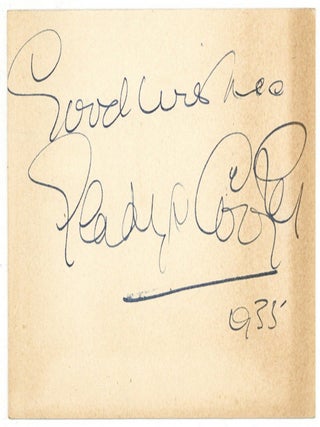 Good wishes
Gladys Cooper
1935